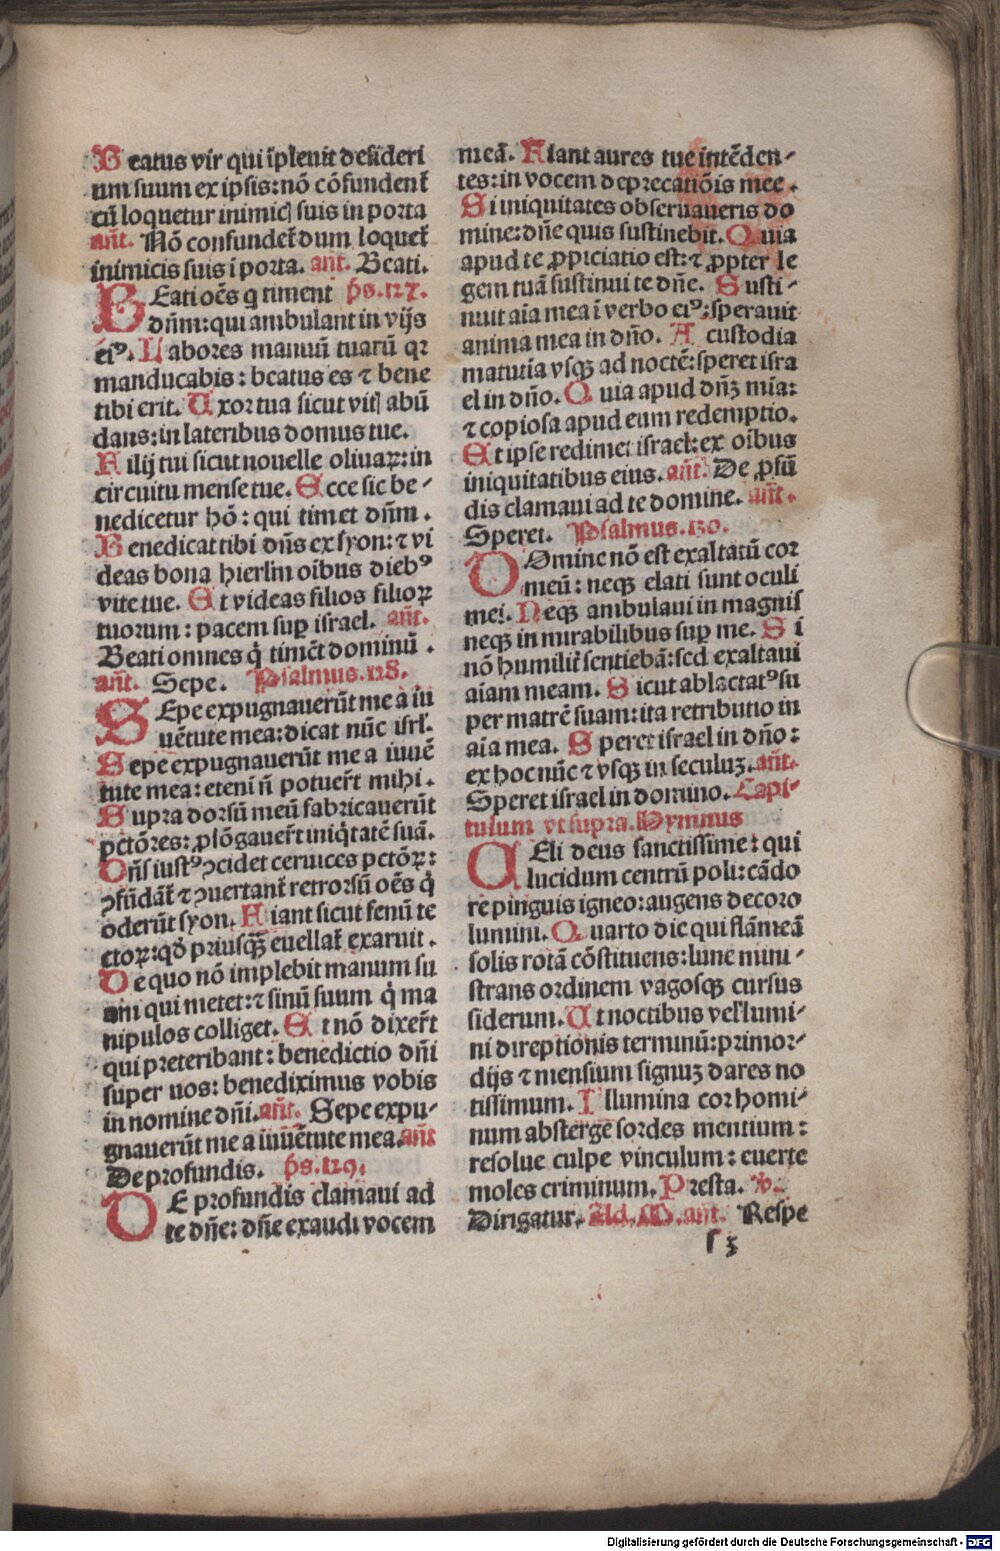 Beatus vir qui ĩpleuit desideri
um suum ex ipsis: nō cōfundent᷑
cū loquetur inimicꝭ suis in porta
añt. Nō confundet᷑ dum loquet᷑
inimicis suis ĩ porta. añt. Beati.
BEati oẽs q timent ps. 127.
dñm: qui ambulant in vijs
eiꝰ. Labores manuū tuarū qꝛ
manducabis: beatus es ⁊ bene
tibi erit. Uxor tua sicut vitꝭ abū
dans: in lateribus domus tue.
Filij tui sicut nouelle oliuaꝝ: in
circuitu mense tue. Ecce sic be⸗
nedicetur hō: qui timet dñm.
Benedicat tibi dñs ex syon: ⁊ vi
deas bona hierlm̄ oībus diebꝰ
vite tue. Et videas filios filioꝝ
tuorum: pacem suꝑ israel. añt.
Beati omnes q̇ timẽt dominū.
añt. Sepe. Psalmus. 128.
SEpe expugnauerūt me a iu
uẽtute mea: dicat nūc isrl̓.
Sepe expugnauerūt me a iuuē
tute mea: eteni ñ potuer̃t mihi.
Supra dorsū meū fabricauerūt
pctōres: ꝓlōgauer̃t iniq̇tatē suā.
Dñs iustꝰ ꝯcidet ceruices pctōꝝ:
ꝯfūdāt᷑ ⁊ ꝯuertant᷑ retrorsū oẽs q̇
oderūt syon. Fiant sicut fenū te
ctoꝝ: qđ priusqꝫ̄ euellat᷑ exaruit.
De quo nō implebit manum su
am qui metet: ⁊ sinū suum q̇ ma
nipulos colliget. Et nō dixer̃t
qui preteribant: benedictio dñi
super uos: benediximus vobis
in nomine dñi. añt. Sepe expu⸗
gnauerūt me a iuuẽtute mea. añt
De profundis. ps. 129.
DE profundis clamaui ad
te dñe: dñe exaudi vocem
meā. Fiant aures tue intẽden⸗
tes: in vocem deprecatiōis mee.
Si iniquitates obseruaueris do
mine: dñe quis sustinebit. Quia
apud te ꝓpiciatio est: ⁊ ꝓpter le
gem tuā sustinui te dñe. Susti⸗
nuit aīa mea ĩ verbo eiꝰ: sperauit
anima mea in dño. A custodia
matutīa vsqꝫ ad noctē: speret isra
el in dño. Quia apud dñꝫ mīa:
⁊ copiosa apud eum redemptio.
Et ipse redimet israel: ex oībus
iniquitatibus eius. añt. De ꝓfū
dis clamaui ad te domine. añt.
Speret. Psalmus. 130.
DOmine nō est exaltatū cor
meū: neqꝫ elati sunt oculi
mei. Neqꝫ ambulaui in magnis
neqꝫ in mirabilibus suꝑ me. Si
nō humilit᷑ sentiebā: sed exaltaui
aīam meam. Sicut ablactatꝰ su
per matrē suam: ita retributio in
aīa mea. Speret israel in dño:
ex hoc nūc ⁊ vsqꝫ in seculuꝫ. añt.
Speret israel in domino. Capi⸗
tulum vt supra. Hymnus
CEli deus sanctissime: qui
lucidum centrū poli: cādo
re pinguis igneo: augens decoro
lumini. Quarto die qui flāmeā
solis rotā cōstituens: lune mini⸗
strans ordinem vagosqꝫ cursus
siderum. Ut noctibus vel̓ lumi⸗
ni direptionis terminū: primor⸗
dijs ⁊ mensium signuꝫ dares no
tissimum. Illumina cor homi⸗
num absterge sordes mentium:
resolue culpe vinculum: euerte
moles criminum. Presta. v̓.
Dirigatur. Ad. M. añt. Respe
s 3
Digitalisierung gefördert durch die Deutsche Forschungsgemeinschaft - DFG